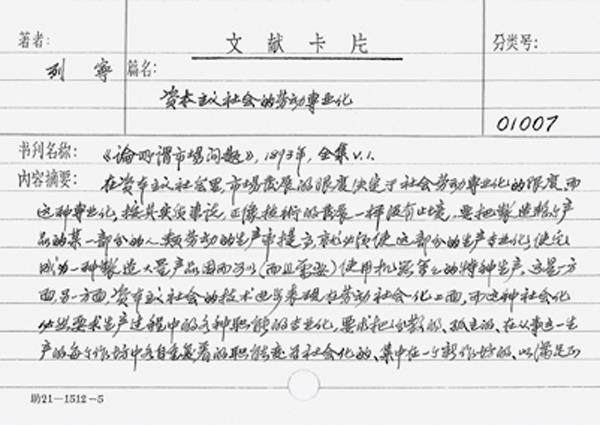 著者: 文献卡片 分类号:
列宁 篇名:
资本主义社会的劳动专业化
01007
书刊名称: 《论所谓市场问题》,1893年,全集V.1.
内容摘要: 在资本主义社会里,市场发展的限度决定于社会劳动专业化的限度。而
这种专业化,按其实质来说,正像技術的发展一样没有止境。要把製造整个产
品的某一部分的人类劳动的生产率提高,就必须使这部分的生产专业化,使它
成为一种製造大量产品因而可以(而且需要)使用机器等等的特种生产。这是一方
面。另一方面,资本主义社会的技术进步表现在劳动社会化上面,而这种社会化
必然要求生产过程中的各种职能的专业化,要求把分散的、孤立的、在从事这一生
产的每个作坊中各自重复着的职能变为社会化的、集中在一个新作坊的、以满足
助21—1512—5